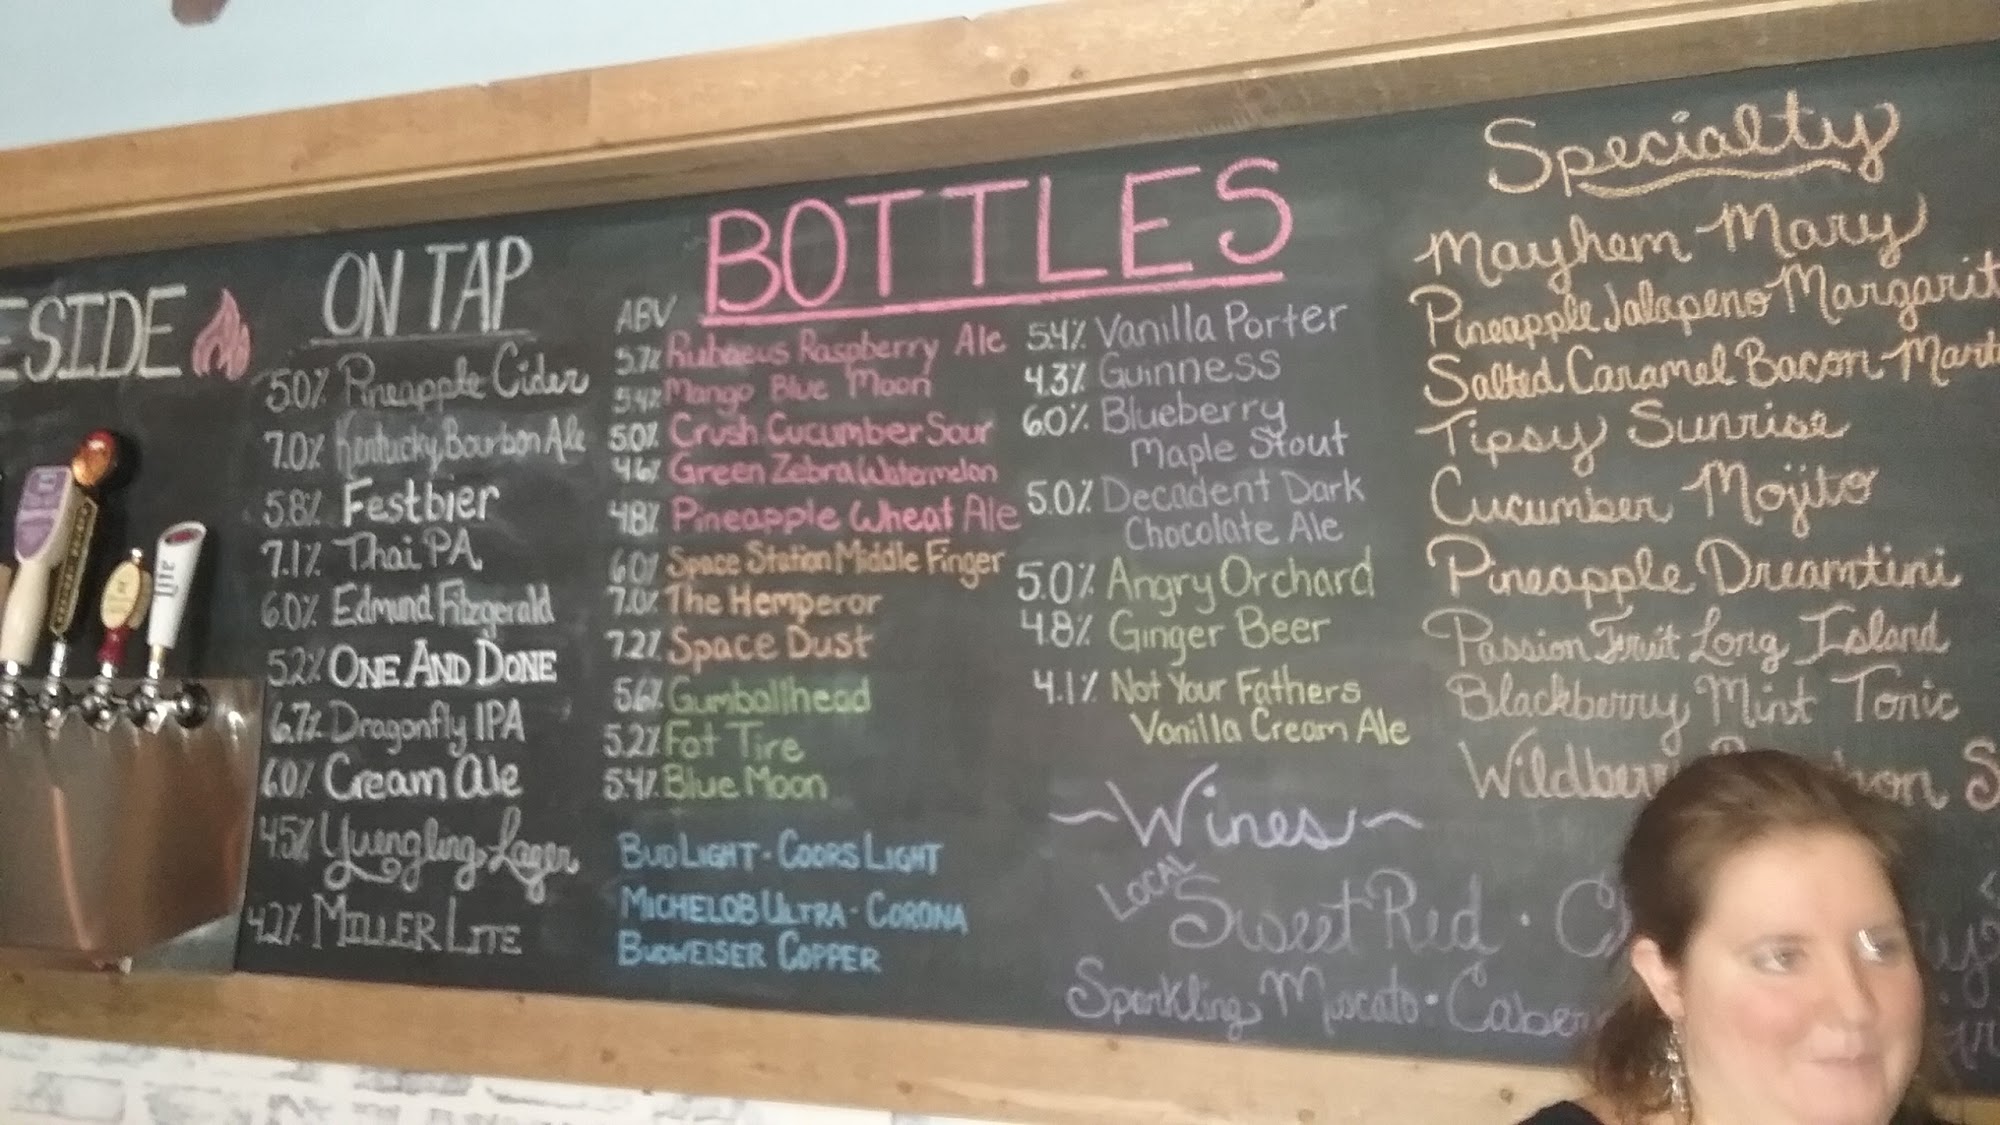 ESIDE
LITE
ON TAP
5.0% Pineapple Cider
7.0% Kentucky Bourbon Ale
5.8% Festbier
7.1% Thai PA
6.0% Edmund Fitzgerald
5.2% ONE AND DONE
6.7% Dragonfly IPA
6.0% Cream Ale
4.5% Yuengling Lager
4.2% MILLER LITE
BOTTLES
ABV
5.7% Rubaeus Raspberry Ale
5.4% Mango Blue Moon
5.0% Crush Cucumber Sour
4.6% Green Zebra Watermelon
4.8% Pineapple Wheat Ale
6.0% Space Station Middle Finger
7.0% The Hemperor
7.2% Space Dust
5.6% Gumballhead
5.2% Fat Tire
5.4% Blue Moon
BUD LIGHT - COORS LIGHT
MICHELOB ULTRA - CORONA
BUDWEISER COPPER
5.4% Vanilla Porter
4.3% Guinness
6.0% Blueberry
Maple Stout
5.0% Decadent Dark
Chocolate Ale
5.0% Angry Orchard
4.8% Ginger Beer
4.1% Not Your Fathers
Vanilla Cream Ale
~Wines~
LOCAL
Sweet Red · C
Sparkling Muscato · Caber
Specialty
Mayhem Mary
Pineapple Jalapeno Margarit
Salted Caramel Bacon Mart
Tipsy Sunrise
Cucumber Mojito
Pineapple Dreamtini
Passion Fruit Long Island
Blackberry Mint Tonic
Wildber